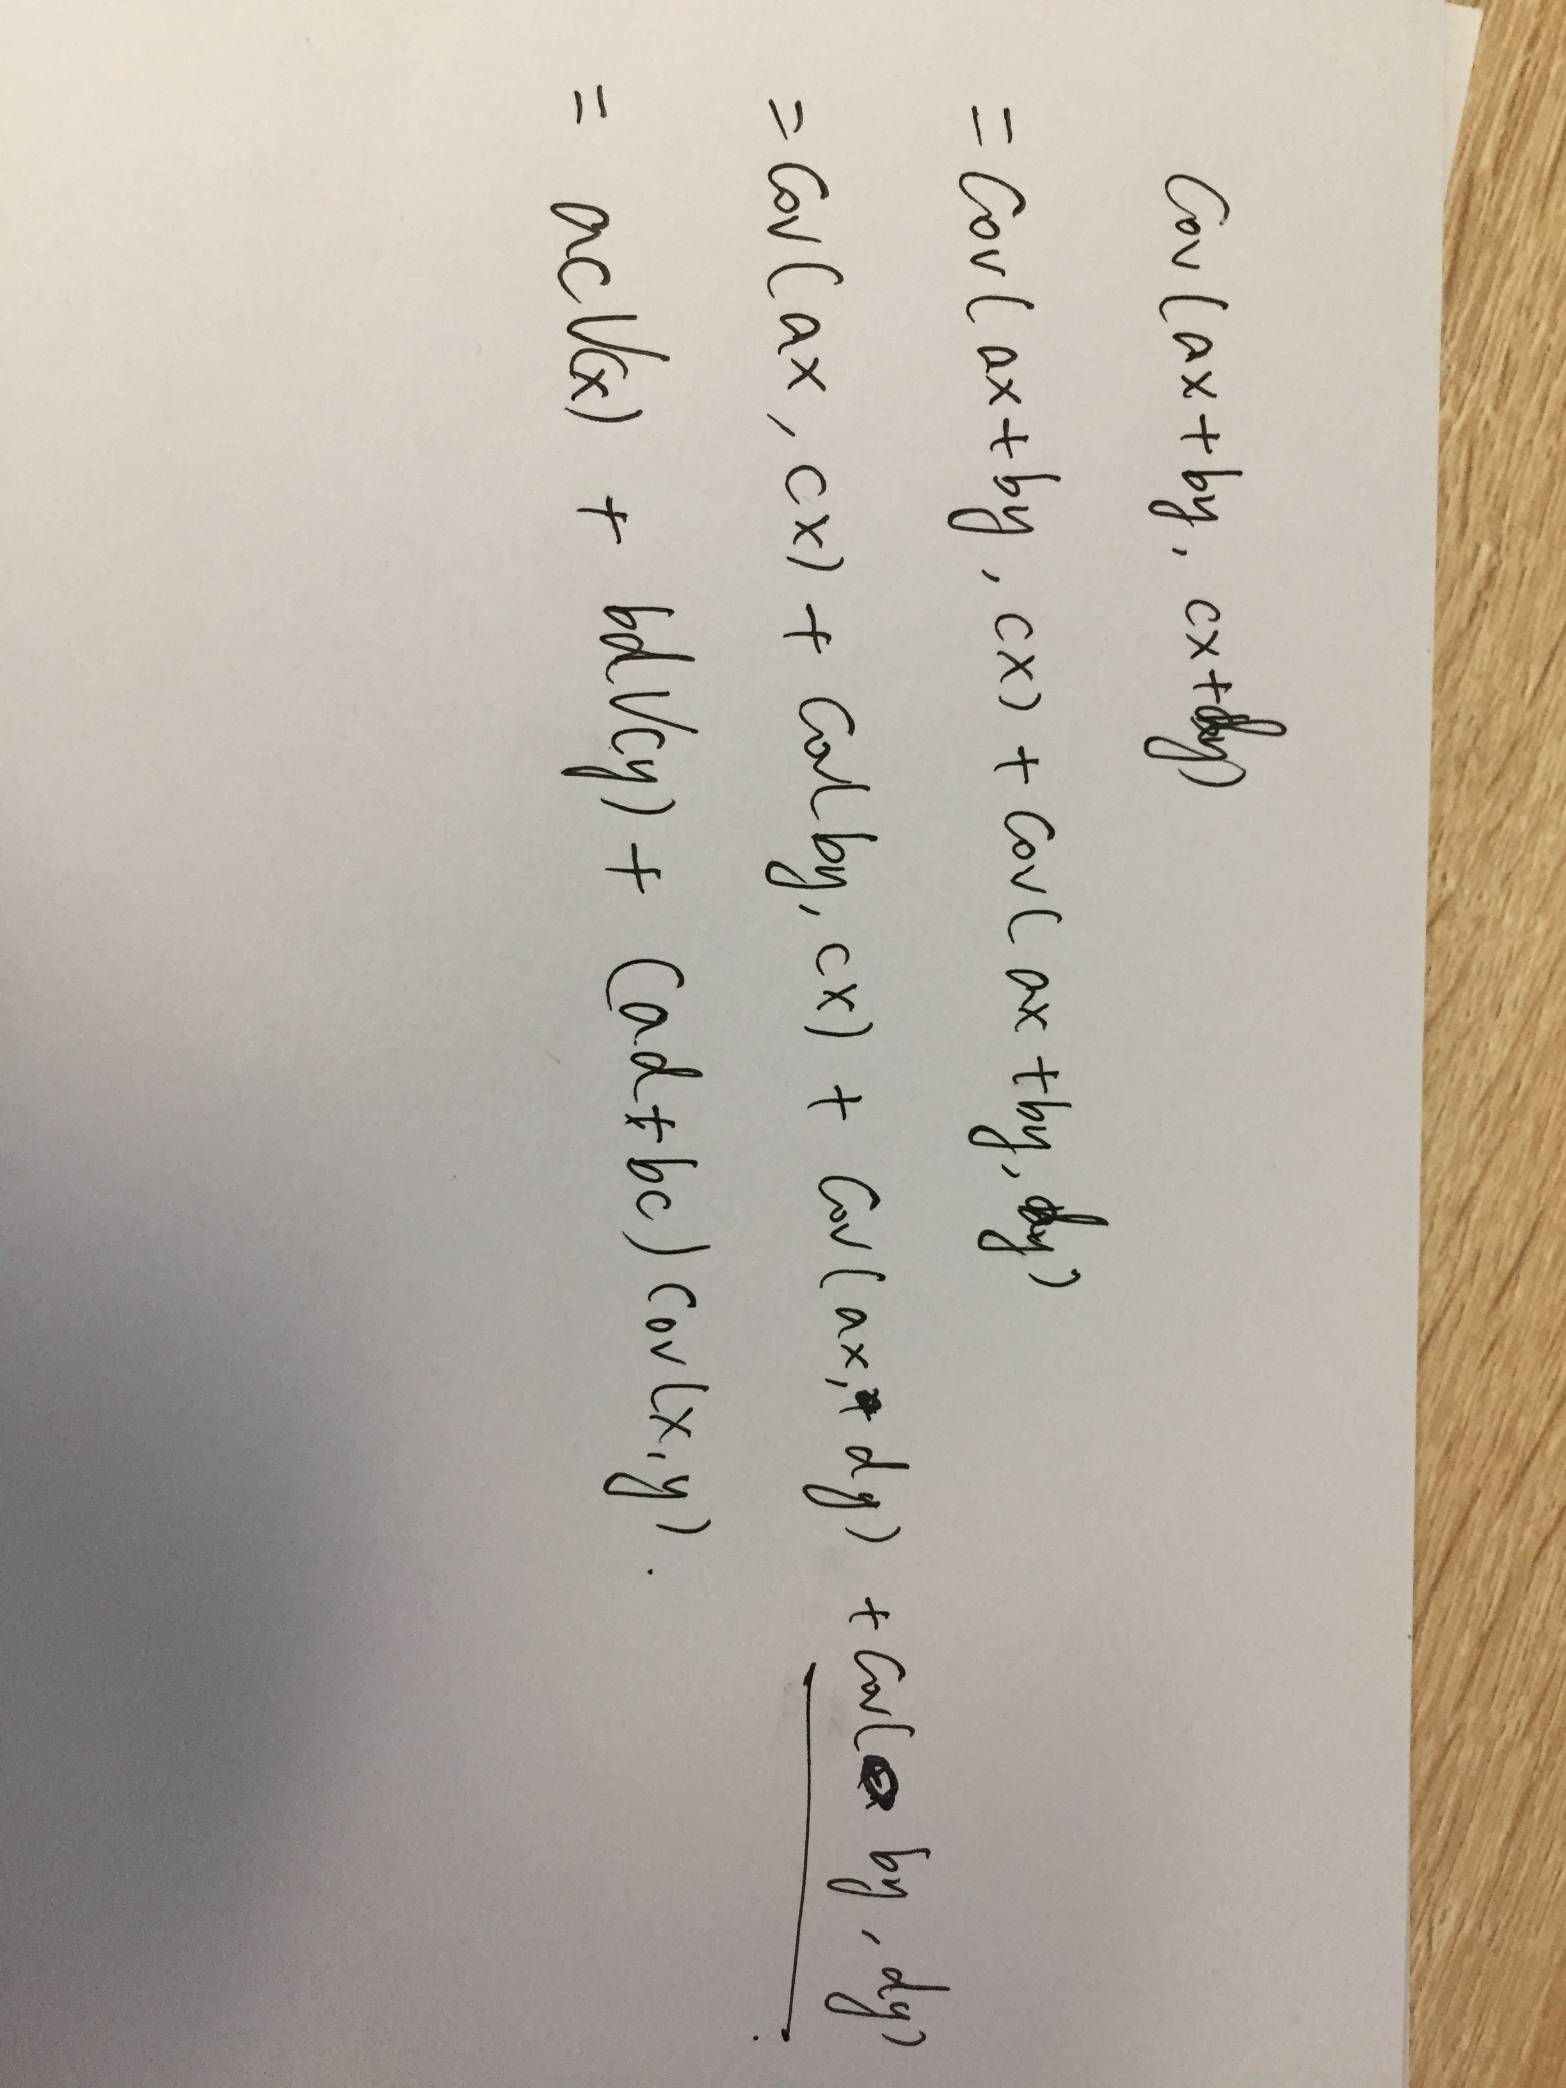 Cov(ax+by, cx+dy)
= Cov(ax+by, cx) + Cov(ax+by, dy)
= Cov(ax, cx) + Cov(by, cx) + Cov(ax, dy) + Cov( by, dy)
= acV(x) + bdV(y) + (ad+bc)cov(x,y).